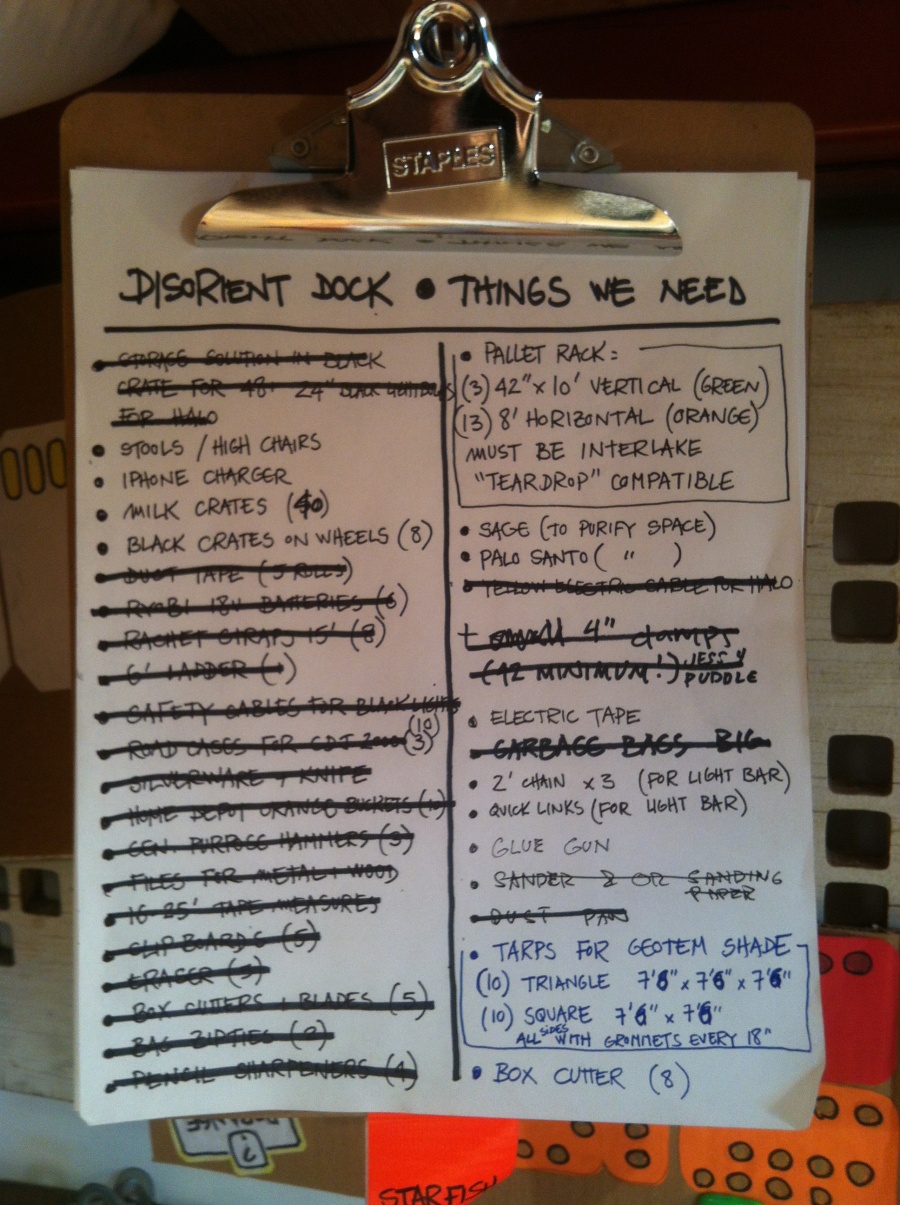 STAPLES
DISORIENT DOCK • THINGS WE NEED
• STORAGE SOLUTION IN BLACK
CRATE FOR 48+ 24" BLACK LIGHT
FOR HALO
• STOOLS / HIGH CHAIRS
• IPHONE CHARGER
• MILK CRATES (40)
• BLACK CRATES ON WHEELS (8)
• DUCT TAPE (5 ROLLS)
• RYOBI 18V BATTERIES (6)
• RACHET STRAPS 15' (8)
• 6' LADDER (1)
• SAFETY CABLES FOR BLACK LIGHTS
(10)
• ROAD CASES FOR CDJ 2000 (3)
• SILVERWARE + KNIFE
• HOME DEPOT ORANGE BUCKETS (10)
• GEN. PURPOSE HAMMERS (3)
• FILES FOR METAL + WOOD
• 16-25' TAPE MEASURES
• CLIP BOARDS (5)
• ERASER (5)
• BOX CUTTERS + BLADES (5)
• BAG ZIPTIES (2)
• PENCIL SHARPENERS (4)
• PALLET RACK:
(3) 42" x 10' VERTICAL (GREEN)
(13) 8' HORIZONTAL (ORANGE)
MUST BE INTERLAKE
"TEARDROP" COMPATIBLE
• SAGE (TO PURIFY SPACE)
• PALO SANTO ( " )
• YELLOW ELECTRIC CABLE FOR HALO
+ small 4" clamps
(42 MINIMUM!) JESS Y
PUDDLE
• ELECTRIC TAPE
• GARBAGE BAGS BIG
• 2' CHAIN x3 (FOR LIGHT BAR)
• QUICK LINKS (FOR LIGHT BAR)
• GLUE GUN
• SANDER & OR SANDING
PAPER
• DUST PAN
• TARPS FOR GEOTEM SHADE
(10) TRIANGLE 7'6" x 7'6" x 7'6"
(10) SQUARE 7'6" x 7'6"
ALL SIDES WITH GROMMETS EVERY 18"
• BOX CUTTER (8)
STARFISH